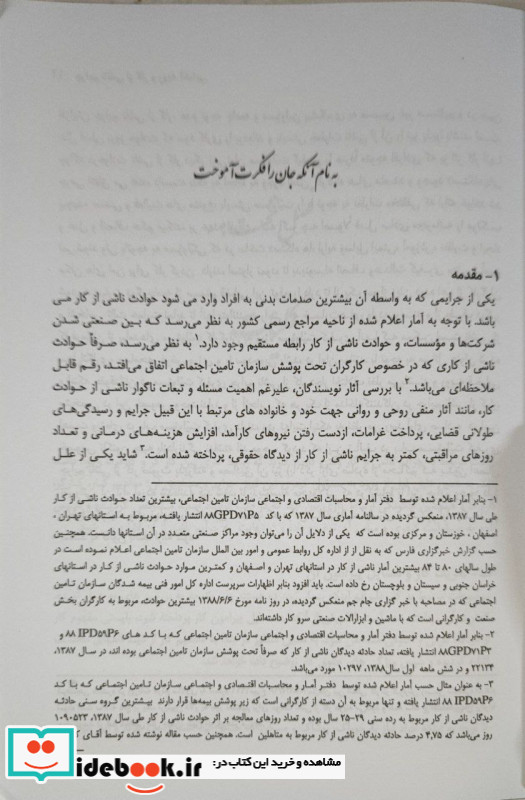 به نام آنکه جان را فکرت آموخت
۱- مقدمه
یکی از جرایمی که به واسطه آن بیشترین صدمات بدنی به افراد وارد می شود حوادث ناشی از کار می
باشد. با توجه به آمار اعلام شده از ناحیه مراجع رسمی کشور به نظر می‌رسد که بین صنعتی شدن
شرکت‌ها و مؤسسات، و حوادث ناشی از کار رابطه مستقیم وجود دارد.۱ به نظر می‌رسد، صرفاً حوادث
ناشی از کاری که در خصوص کارگران تحت پوشش سازمان تامین اجتماعی اتفاق می‌افتد، رقم قابل
ملاحظه‌ای می‌باشد.۲ با بررسی آثار نویسندگان، علیرغم اهمیت مسئله و تبعات ناگوار ناشی از حوادث
کار، مانند آثار منفی روحی و روانی جهت خود و خانواده های مرتبط با این قبیل جرایم و رسیدگی‌های
طولانی قضایی، پرداخت غرامات، ازدست رفتن نیروهای کارآمد، افزایش هزینه‌های درمانی و تعداد
روزهای مراقبتی، کمتر به جرایم ناشی از کار از دیدگاه حقوقی، پرداخته شده است.۳ شاید یکی از علل
۱- بنابر آمار اعلام شده توسط دفتر آمار و محاسبات اقتصادی و اجتماعی سازمان تامین اجتماعی، بیشترین تعداد حوادث ناشی از کار
طی سال ۱۳۸۷، منعکس گردیده در سالنامه آماری سال ۱۳۸۷ که با کد ۸۸GPD۷۱P۵ انتشار یافته، مربوط به استانهای تهران ،
اصفهان ، خوزستان و مرکزی بوده است که یکی از دلایل آن را می‌توان وجود مراکز صنعتی متعدد در آن استانها دانست. همچنین
حسب گزارش خبرگزاری فارس که به نقل از از اداره کل روابط عمومی و امور بین الملل سازمان تامین اجتماعی اعلام نموده است در
طول سالهای ۸۰ تا ۸۴ بیشترین آمار ناشی از کار در استانهای تهران و اصفهان و کمترین موارد حوادث ناشی از کار در استانهای
خراسان جنوبی و سیستان و بلوچستان رخ داده است. باید افزود بنابر اظهارات سرپرست اداره کل امور فنی بیمه شدگان سازمان تامین
اجتماعی که در مصاحبه با خبر گزاری جام جم منعکس گردیده، در روز نامه مورخ ۱۳۸۸/۶/۶ بیشترین حوادث، مربوط به کارگران بخش
صنعت و کارگرانی است که با ماشین و ابزارالات صنعتی سرو کار داشته‌اند.
۲- بنابر آمار اعلام شده توسط دفتر آمار و محاسبات اقتصادی و اجتماعی سازمان تامین اجتماعی که با کد های ۸۸ IPD۵۹P۶ و
۸۸GPD۷۱P۳ انتشار یافته، تعداد حادثه دیدگان ناشی از کار که صرفاً تحت پوشش سازمان تامین اجتماعی بوده اند، در سال ۱۳۸۷،
۲۲۱۳۴ و در شش ماهه اول سال۱۳۸۸، ۱۰۲۹۷ مورد می‌باشد.
۳- به عنوان مثال حسب آمار اعلام شده توسط دفتر آمار و محاسبات اقتصادی و اجتماعی سازمان تامین اجتماعی که با کد
۸۸ IPD۵۹P۶ انتشار یافته و تنها مربوط به آن دسته از کارگرانی است که زیر پوشش بیمه‌ها قرار دارند بیشترین گروه سنی حادثه
دیدگان ناشی از کار مربوط به رده سنی ۲۹-۲۵ سال بوده و تعداد روزهای معالجه بر اثر حوادث ناشی از کار طی سال ۱۳۸۷، ۱۰۹۰۵۲۳
روز می‌باشد که ۴,۷۵ درصد حادثه دیدگان ناشی از کار مربوط به متاهلین است. همچنین حسب مقاله نوشته شده توسط آقای
مشاهده و خرید این کتاب در:
idebook.ir